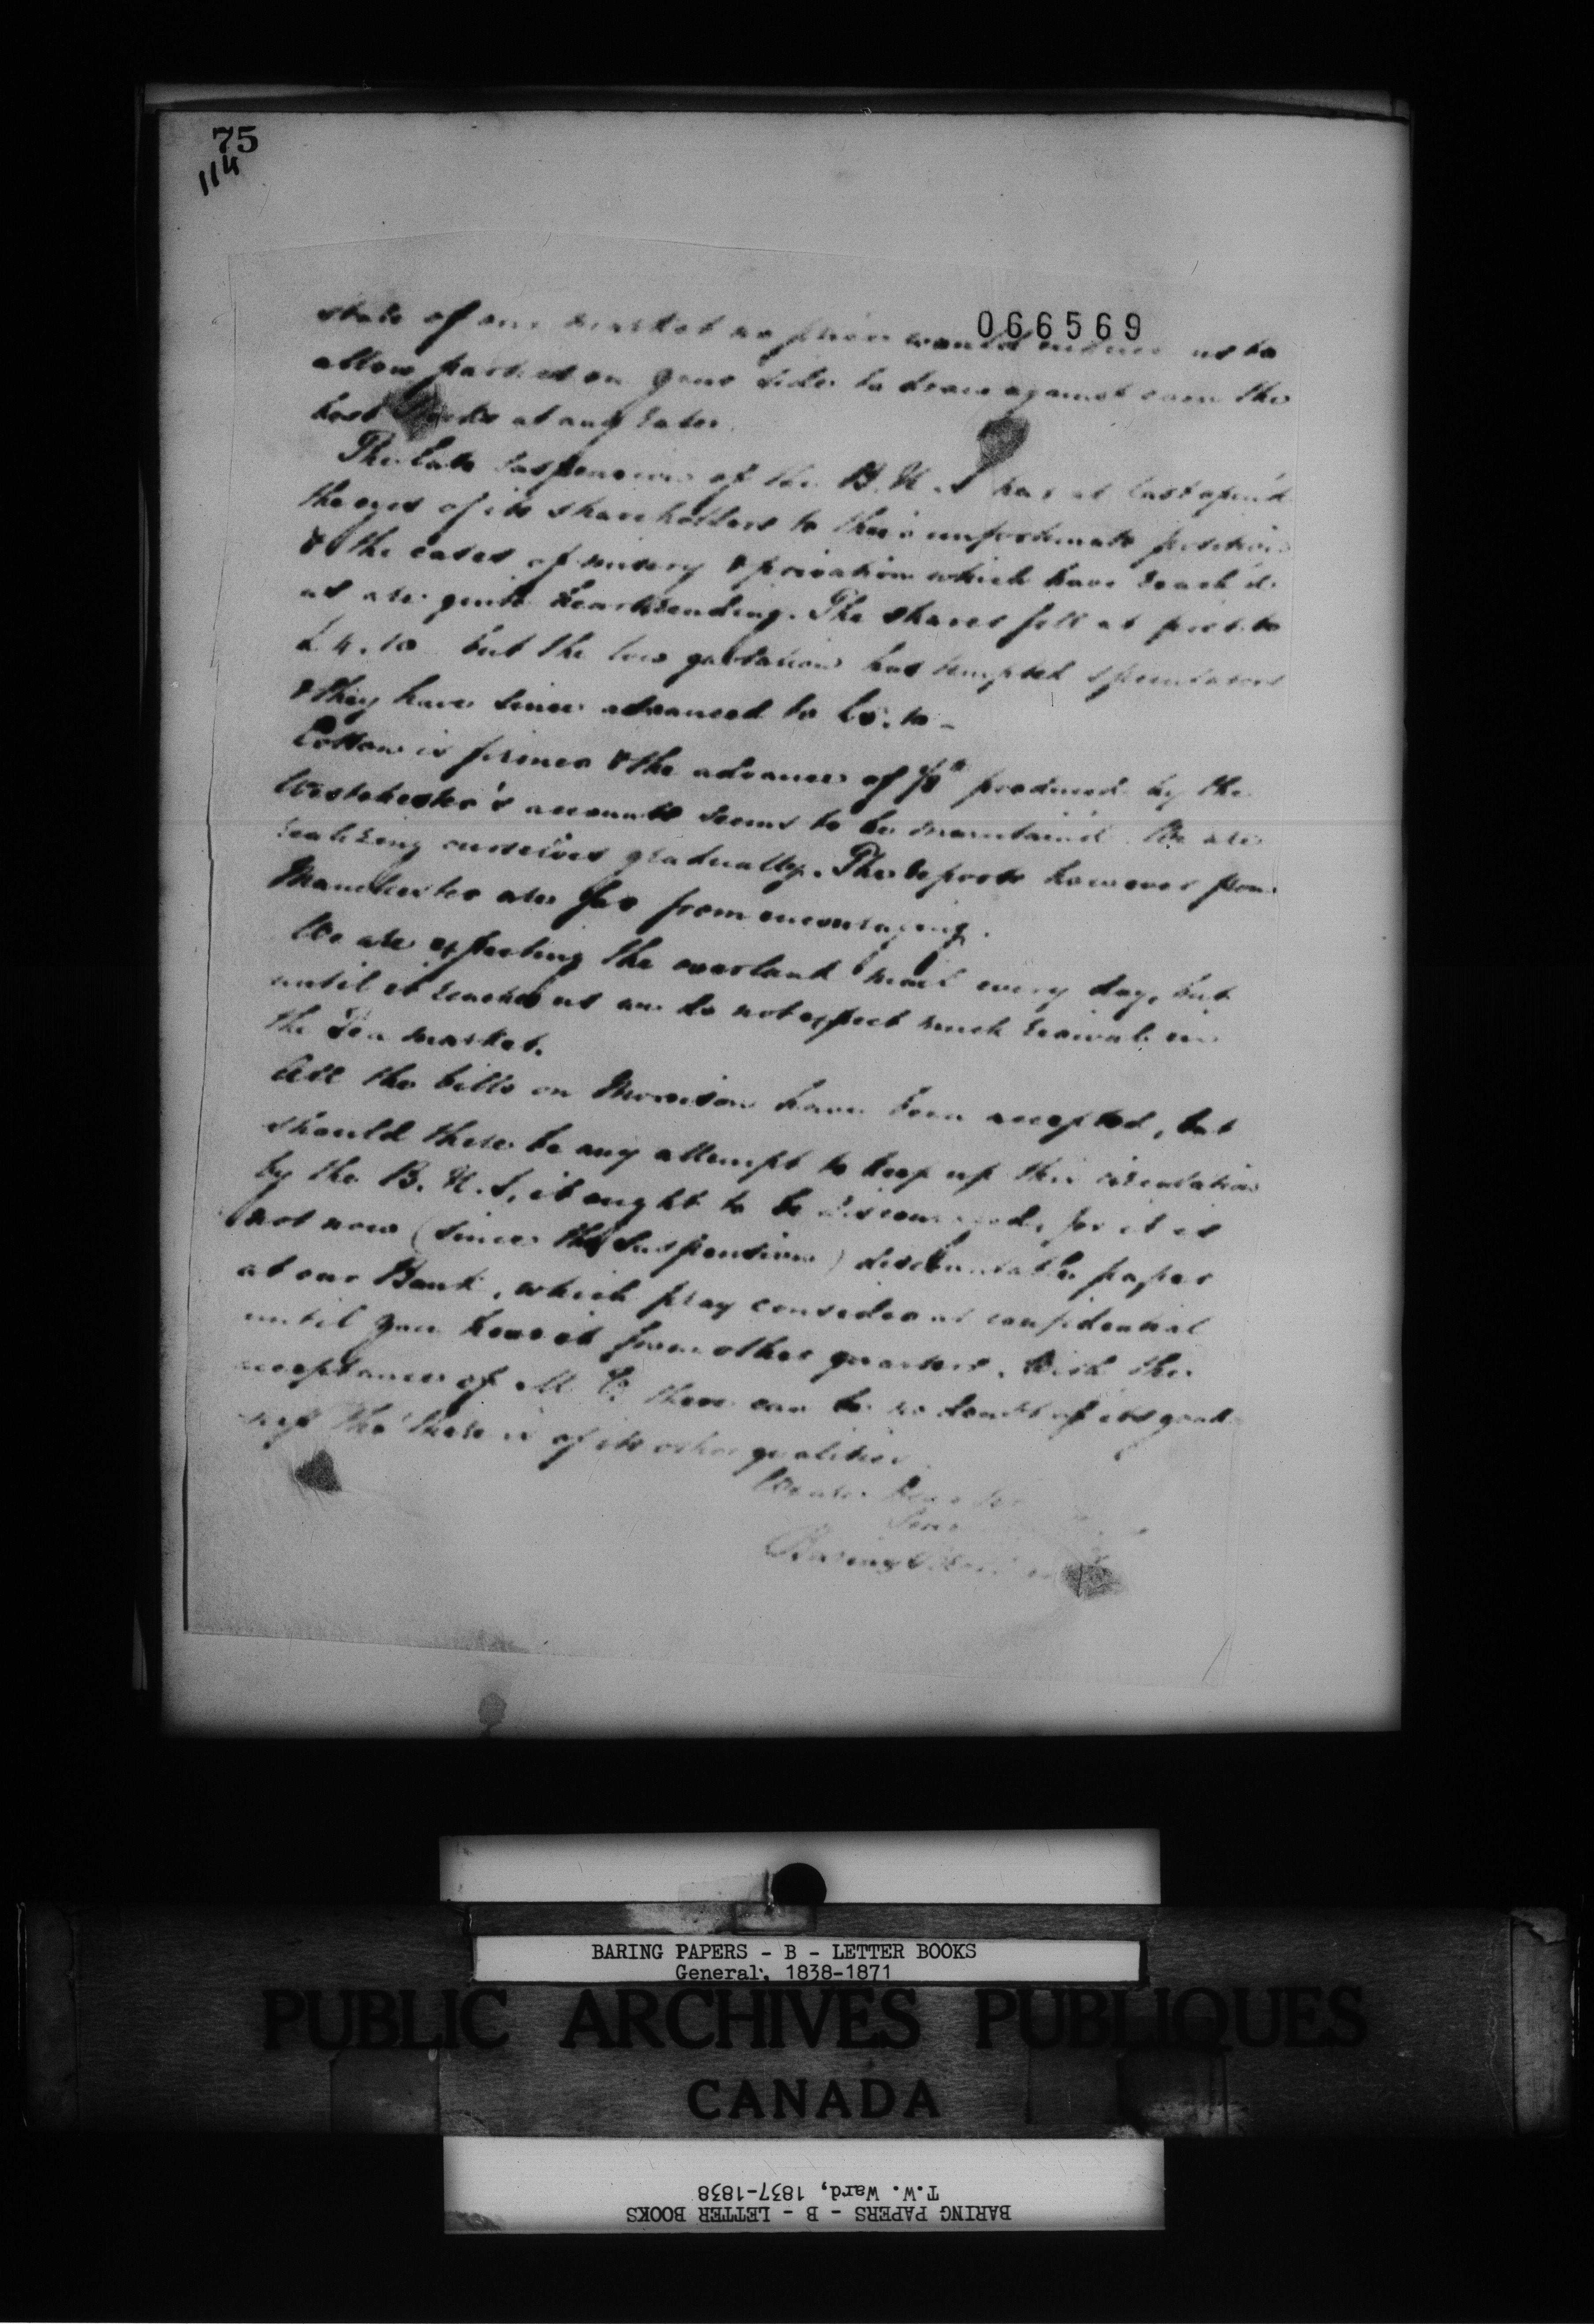 75
114
066569
state of our market no price would induce us to
allow parties on your side to draw against even the
best at any rate.
The late suspension of the B.U.S has at last open'd
the eyes of its shareholders to their unfortunate position
& the cases of misery & privation which have reach'd
us are quite heartrending. The shares fell at first to
£4.10 but the low quotation has tempted speculators
& they have since advanced to
Cotton is firmer & the advance of produced by the
Westchester's accounts seems to be maintain'd. We are
realizing ourselves gradually. The reports however from
Manchester are far from encouraging.
We are expecting the overland mail every day, but
until it reaches us we do not expect much revival in
the Tea market.
All the bills on Morrison have been accepted, but
should there be any attempt to keep up this circulation
by the B.U.S, it ought to be discouraged, for it is
not now (since the suspension) discountable paper
at our Bank, which pray consider as confidential
until you hear it from other quarters. With the
acceptance of M. there can be no doubt of its good-
ness tho' there is of its other qualities.
We are Dear Sir
Baring Brothers
BARING PAPERS - B - LETTER BOOKS
General, 1838-1871
PUBLIC ARCHIVES PUBLIQUES
CANADA
BARING PAPERS - B - LETTER BOOKS
T.W. Ward, 1837-1838